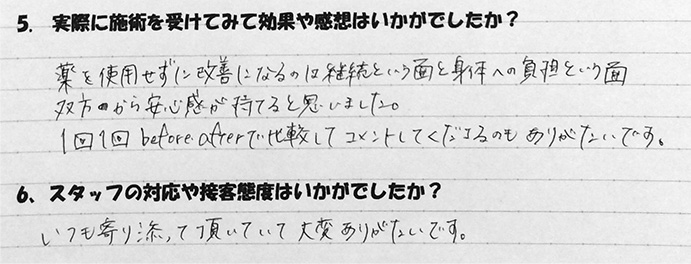 5. 実際に施術を受けてみて効果や感想はいかがでしたか？
薬を使用せずに改善になるのは継続という面と身体への負担という面
双方から安心感が持てると思いました。
1回1回before・afterで比較してコメントしてくださるのもありがたいです。
6、スタッフの対応や接客態度はいかがでしたか？
いつも寄り添って頂いていて大変ありがたいです。